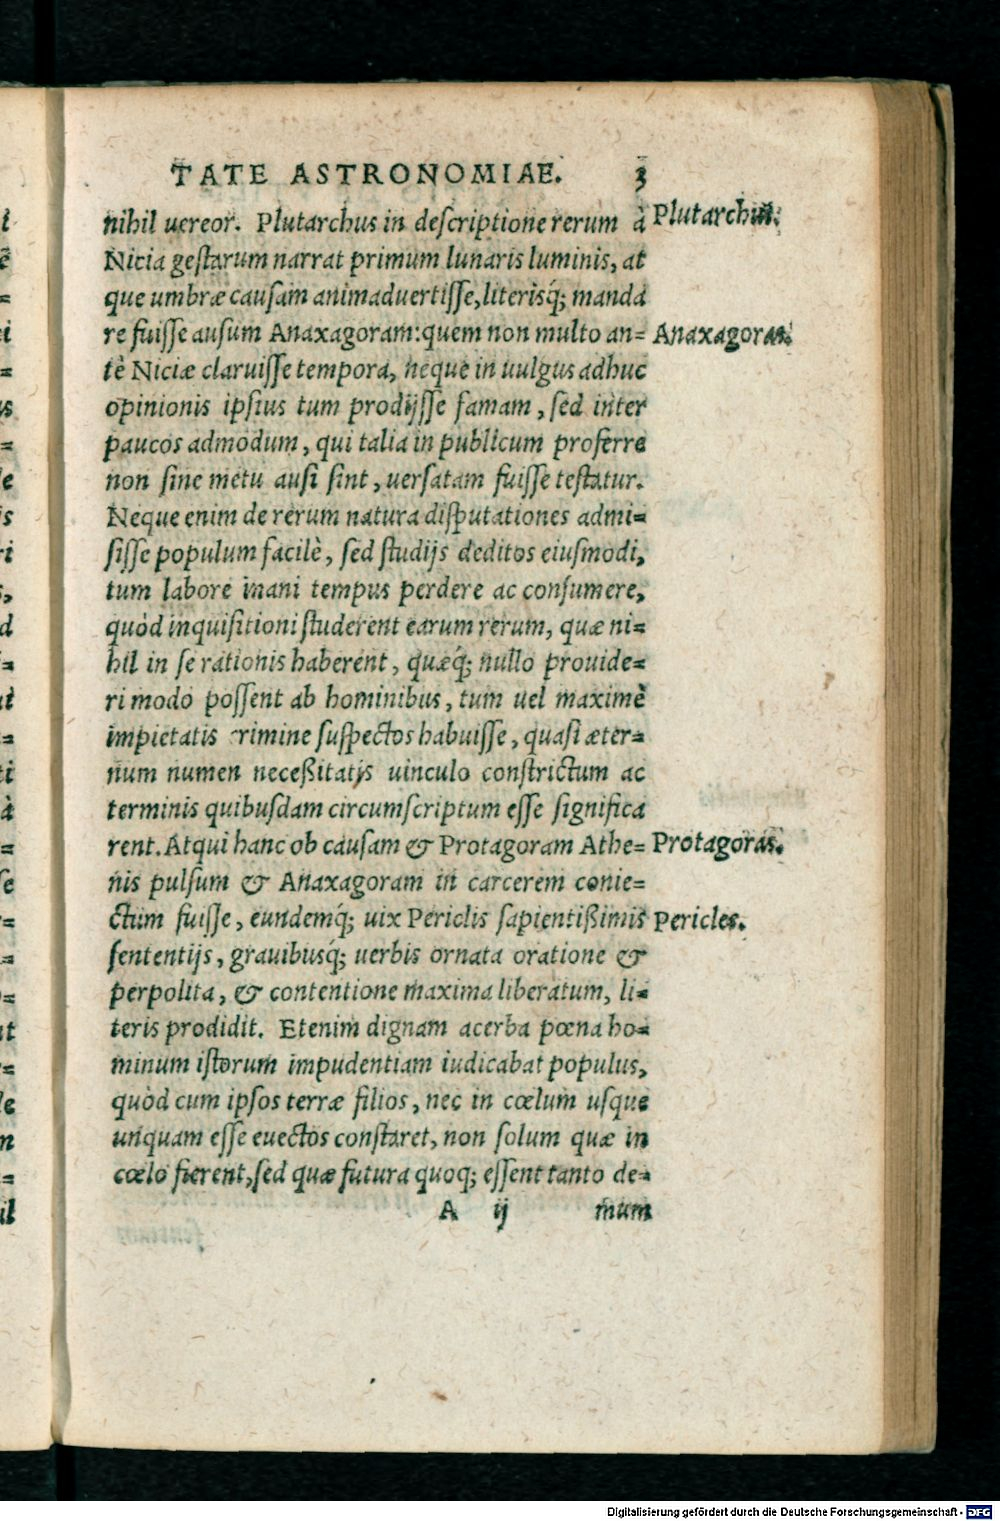 TATE ASTRONOMIAE. 3
nihil uereor. Plutarchus in descriptione rerum à Plutarchus.
Nicia gestarum narrat primum lunaris luminis, at
que umbræ causam animaduertisse, literisq́; manda
re fuisse ausum Anaxagoram: quem non multo an= Anaxagoras.
tè Niciæ claruisse tempora, neque in uulgus adhuc
opinionis ipsius tum prodijsse famam, sed inter
paucos admodum, qui talia in publicum proferre
non sine metu ausi sint, uersatam fuisse testatur.
Neque enim de rerum natura disputationes admi=
sisse populum facilè, sed studijs deditos eiusmodi,
tum labore inani tempus perdere ac consumere,
quòd inquisitioni studerent earum rerum, quæ ni=
hil in se rationis haberent, quæq́; nullo prouide=
ri modo possent ab hominibus, tum uel maximè
impietatis crimine suspectos habuisse, quasi æter=
num numen neceßitatis uinculo constrictum ac
terminis quibusdam circumscriptum esse significa
rent. Atqui hanc ob causam & Protagoram Athe= Protagoras.
nis pulsum & Anaxagoram in carcerem conie=
ctum fuisse, eundemq́; uix Periclis sapientißimis Pericles.
sententijs, grauibusq́; uerbis ornata oratione &
perpolita, & contentione maxima liberatum, li=
teris prodidit. Etenim dignam acerba pœna ho=
minum istorum impudentiam iudicabat populus,
quòd cum ipsos terræ filios, nec in cœlum usque
unquam esse euectos constaret, non solum quæ in
cœlo fierent, sed quæ futura quoq; essent tanto de=
A ij mum
Digitalisierung gefördert durch die Deutsche Forschungsgemeinschaft - DFG